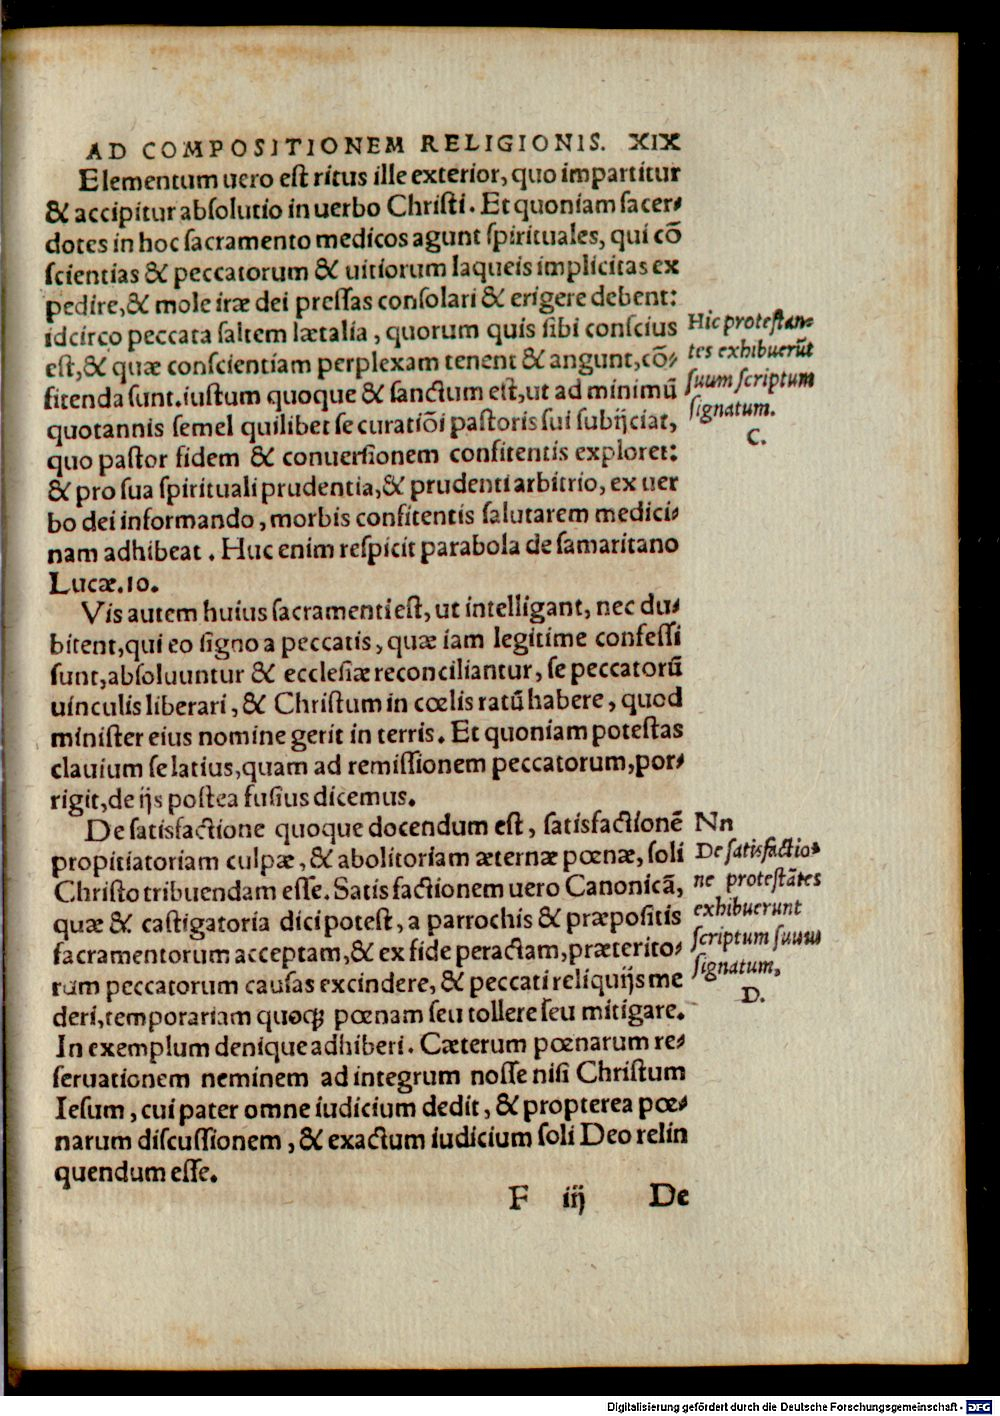 AD COMPOSITIONEM RELIGIONIS. XIX
Elementum uero est ritus ille exterior, quo impartitur
& accipitur absolutio in uerbo Christi. Et quoniam sacer⸗
dotes in hoc sacramento medicos agunt spirituales, qui cō
scientias & peccatorum & uitiorum laqueis implicitas ex
pedire, & mole iræ dei pressas consolari & erigere debent:
idcirco peccata saltem lætalia, quorum quis sibi conscius
est, & quæ conscientiam perplexam tenent & angunt, cō⸗
fitenda sunt. iustum quoque & sanctum est, ut ad minimū
quotannis semel quilibet se curatiōi pastoris sui subijciat,
quo pastor fidem & conuersionem confitentis exploret:
& pro sua spirituali prudentia, & prudenti arbitrio, ex uer
bo dei informando, morbis confitentis salutarem medici⸗
nam adhibeat. Huc enim respicit parabola de samaritano
Lucæ. 10.
Hic protestan⸗
tes exhibuerūt
suum scriptum
signatum.
C.
Vis autem huius sacramenti est, ut intelligant, nec du⸗
bitent, qui eo signo a peccatis, quæ iam legitime confessi
sunt, absoluuntur & ecclesiæ reconciliantur, se peccatorū
uinculis liberari, & Christum in cœlis ratū habere, quod
minister eius nomine gerit in terris. Et quoniam potestas
clauium se latius, quam ad remissionem peccatorum, por⸗
rigit, de ijs postea fusius dicemus.
De satisfactione quoque docendum est, satisfactionē
propitiatoriam culpæ, & abolitoriam æternæ pœnæ, soli
Christo tribuendam esse. Satisfactionem uero Canonicā,
quæ & castigatoria dici potest, a parrochis & præpositis
sacramentorum acceptam, & ex fide peractam, præterito⸗
rum peccatorum causas excindere, & peccati reliquijs me
deri, temporariam quoqꝫ pœnam seu tollere seu mitigare.
In exemplum denique adhiberi. Cæterum pœnarum re⸗
seruationem neminem ad integrum nosse nisi Christum
Iesum, cui pater omne iudicium dedit, & propterea pœ⸗
narum discussionem, & exactum iudicium soli Deo relin
quendum esse.
Nn
De satisfactio⸗
ne protestātes
exhibuerunt
scriptum suum
signatum.
D.
F iij De
Digitalisierung gefördert durch die Deutsche Forschungsgemeinschaft - DFG